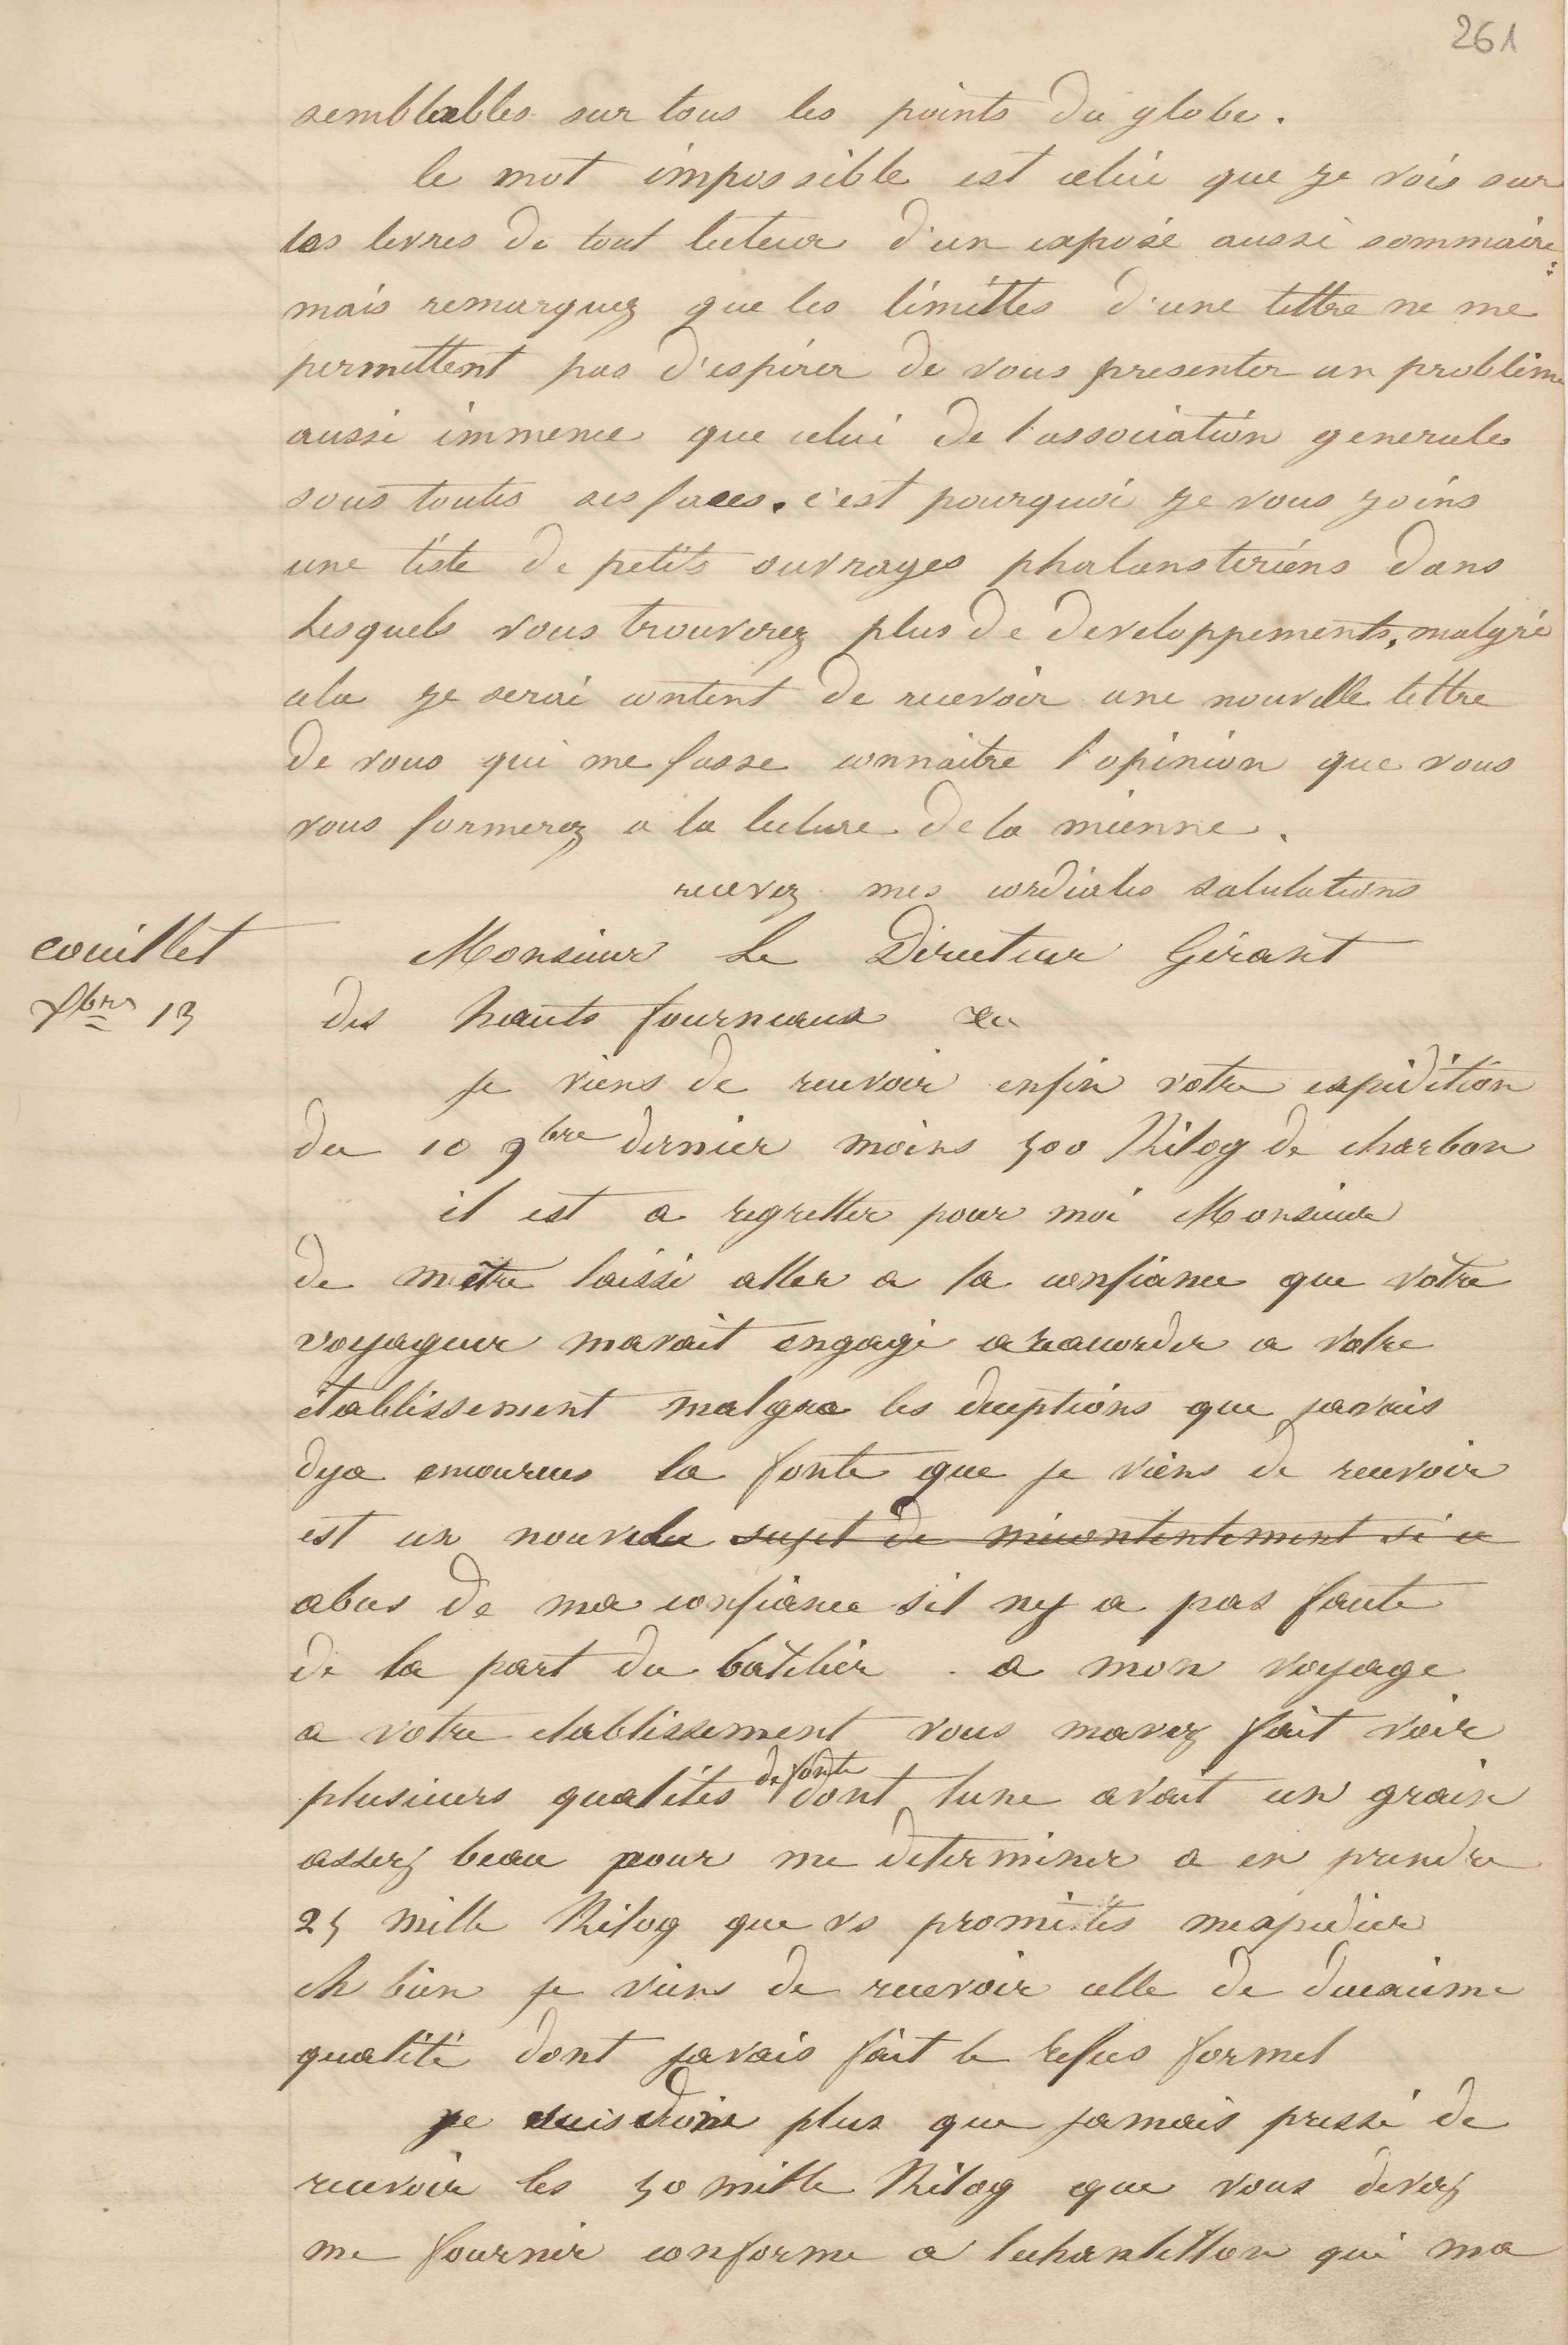 261
semblables sur tous les points du globe.
le mot impossible est celui que je vois sur
les levres de tout lecteur d'un exposé aussi sommaire:
mais remarquez que les limittes d'une lettre ne me
permettent pas d'espérer de vous presenter un problème
aussi immence que celui de l'association generale
sous toutes ses faces. c'est pourquoi je vous joins
une liste de petits ouvrages phalansteriens dans
lesquels vous trouverez plus de developpements, malgré
cela je serai content de recevoir une nouvelle lettre
de vous qui me fasse connaitre l'opinion que vous
vous formerez a la lecture de la mienne.
recevez mes cordiales salutations
couillet
Monsieur Le Directeur Gérant
xbre 13
des hauts fourneaux
je viens de recevoir enfin votre expédition
du 10 9bre dernier moins 500 Kilog de charbon
il est a regretter pour moi Monsieur
de mètre laissé aller a la confiance que votre
voyageur mavait engagé a raccorder a votre
établissement malgré les deceptions que javais
deja encourues la fonte que je viens de recevoir
est un nouvel sujet de mécontentement si ce
abus de ma confiance sil ny a pas faute
de la part du bâtelier . a mon voyage
a votre etablissement vous mavez fait voir
plusieurs qualités de fonte dont lune avait un grain
assez beau pour me determiner a en prendre
25 mille Kilog que vs promites mexpedier
eh bien je viens de recevoir celle de deuxieme
qualité dont javais fait le refus formel
je suis donc plus que jamais pressé de
recevoir les 50 mille Kilog que vous devez
me fournir conforme a lechantillon qui ma